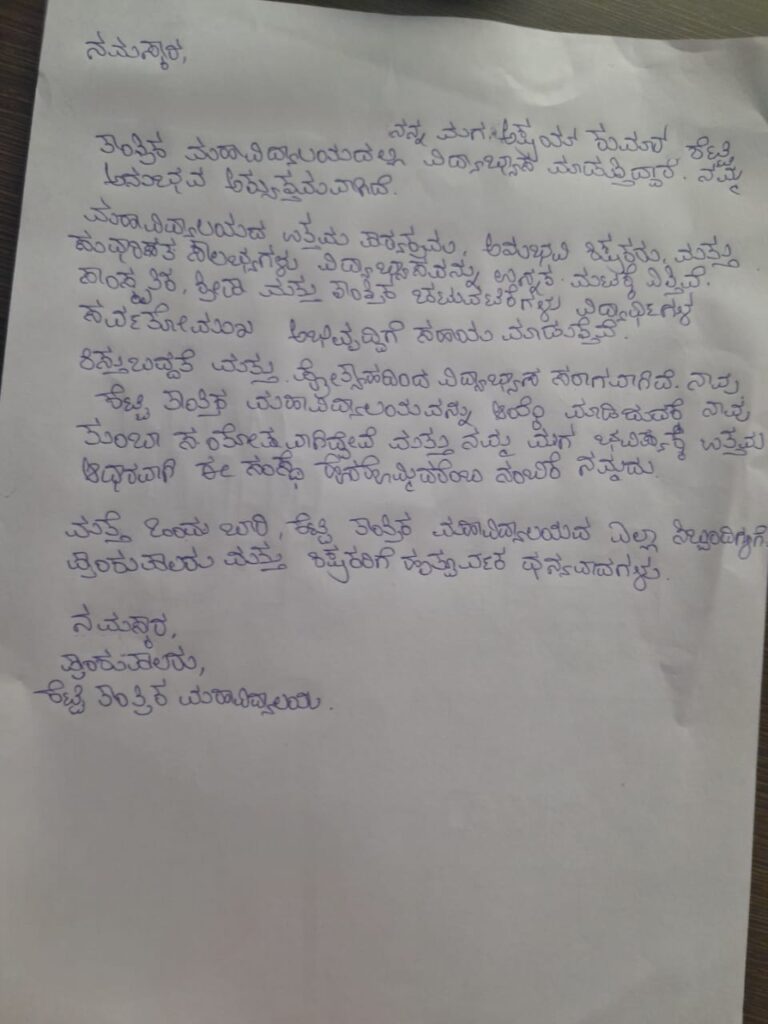 ನಮಸ್ಕಾರ,
ನನ್ನ ಮಗ ಅಕ್ಷಯ್ ಕುಮಾರ್ ಶೆಟ್ಟಿ
ತಾಂತ್ರಿಕ ಮಹಾವಿದ್ಯಾಲಯದಲ್ಲಿ ವಿದ್ಯಾಭ್ಯಾಸ ಮಾಡುತ್ತಿದ್ದಾರೆ. ನಮ್ಮ
ಅನುಭವ ಅತ್ಯುತ್ತಮವಾಗಿದೆ.
ಮಹಾವಿದ್ಯಾಲಯದ ಉತ್ತಮ ಪಾಠ್ಯಕ್ರಮ, ಅನುಭವಿ ಶಿಕ್ಷಕರು, ಮತ್ತು
ಸುಧಾರಿತ ಸೌಲಭ್ಯಗಳು ವಿದ್ಯಾಭ್ಯಾಸವನ್ನು ಉನ್ನತ ಮಟಕ್ಕೆ ಎತ್ತಿವೆ.
ಸಾಂಸ್ಕೃತಿಕ, ಕ್ರೀಡಾ ಮತ್ತು ತಾಂತ್ರಿಕ ಚಟುವಟಿಕೆಗಳು ವಿದ್ಯಾರ್ಥಿಗಳ
ಸರ್ವತೋಮುಖ ಅಭಿವೃದ್ಧಿಗೆ ಸಹಾಯ ಮಾಡುತ್ತವೆ.
ಶಿಸ್ತುಬದ್ಧತೆ ಮತ್ತು ಪ್ರೋತ್ಸಾಹದಿಂದ ವಿದ್ಯಾಭ್ಯಾಸ ಸರಾಗವಾಗಿದೆ. ನಾವು
ಶೆಟ್ಟಿ ತಾಂತ್ರಿಕ ಮಹಾವಿದ್ಯಾಲಯವನ್ನು ಆಯ್ಕೆ ಮಾಡಿದುದಕ್ಕೆ ನಾವು
ತುಂಬಾ ಸಂತೋಷವಾಗಿದ್ದೇವೆ ಮತ್ತು ನಮ್ಮ ಮಗ ಭವಿಷ್ಯಕ್ಕೆ ಉತ್ತಮ
ಆಧಾರವಾಗಿ ಈ ಸಂಸ್ಥೆ ನಂಬಿಕೆ ನಮ್ಮದು.
ಮತ್ತೆ ಒಂದು ಬಾರಿ, ಶೆಟ್ಟಿ ತಾಂತ್ರಿಕ ಮಹಾವಿದ್ಯಾಲಯದ ಎಲ್ಲಾ ಸಿಬ್ಬಂದಿಗಳಿಗೆ.
ಪ್ರಾಂಶುಪಾಲರು ಮತ್ತು ಶಿಕ್ಷಕರಿಗೆ ಹೃತ್ಪೂರ್ವಕ ಧನ್ಯವಾದಗಳು.
ನಮಸ್ಕಾರ,
ಪ್ರಾಂಶುಪಾಲರು,
ಶೆಟ್ಟಿ ತಾಂತ್ರಿಕ ಮಹಾವಿದ್ಯಾಲಯ.